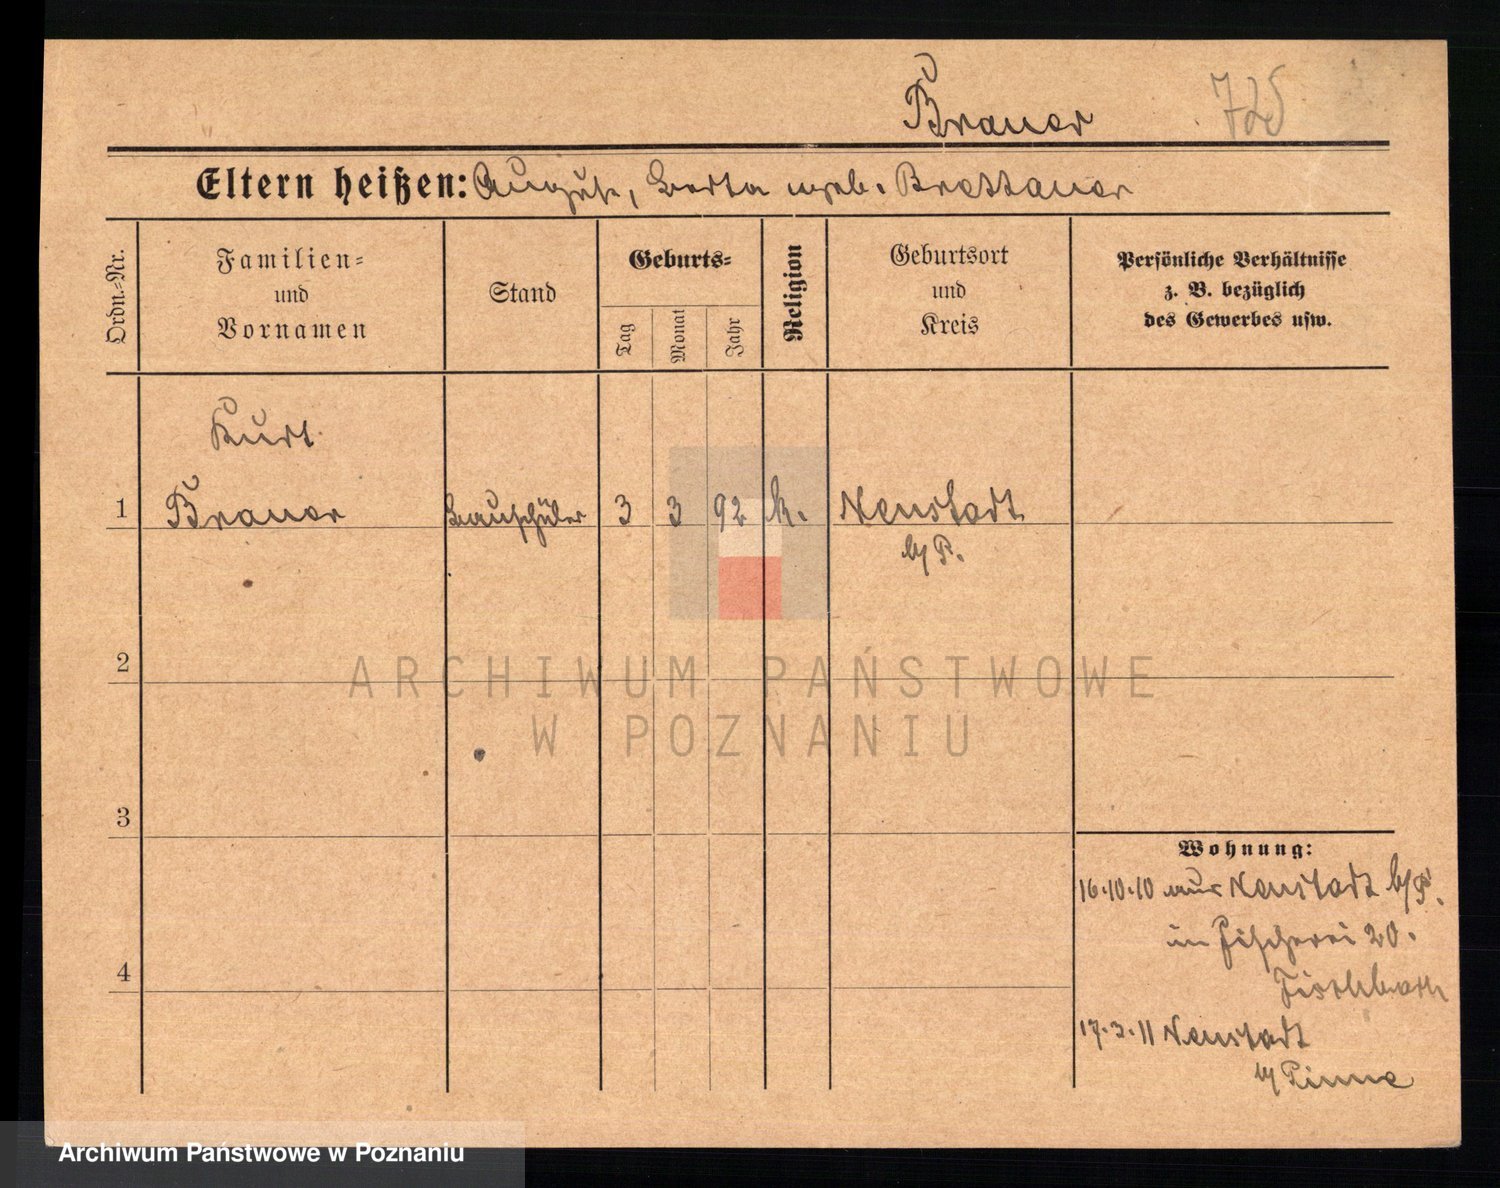 Brauer 725
Eltern heißen: August, Berta geb. Brettauer
Ordn.-Nr.
Familien-
und
Vornamen
Stand
Geburts-
Tag
Monat
Jahr
Religion
Geburtsort
und
Kreis
Persönliche Verhältnisse
z. B. bezüglich
des Gewerbes usw.
Kurt
1 Brauer Bauschüler 3 3 92 k. Neustadt
b/P.
2
ARCHIWUM PAŃSTWOWE
W POZNANIU
3
Wohnung:
16.10.10 aus Neustadt b/P.
in Fischerei 20.
4
17.3.11 Neustadt
b/ Pinne
Archiwum Państwowe w Poznaniu